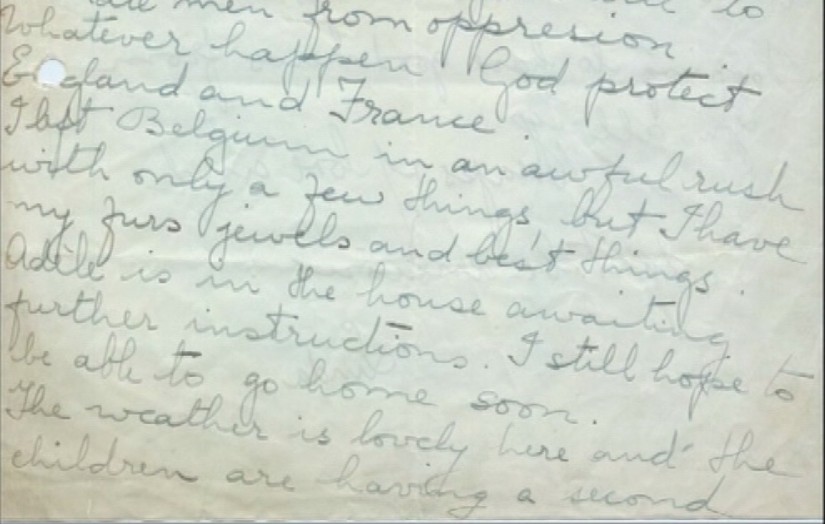 men from oppresion
Whatever happen God protect
England and France.
I left Belgium in an awful rush
with only a few things, but I have
my furs jewels and best things.
Adèle is in the house awaiting
further instructions. I still hope to
be able to go home soon.
The weather is lovely here and the
children are having a second